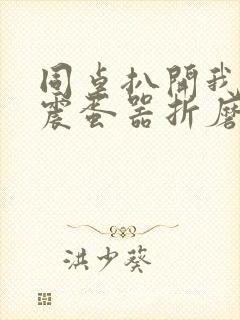 同桌扒開我
震蛋器折磨
洪少葵